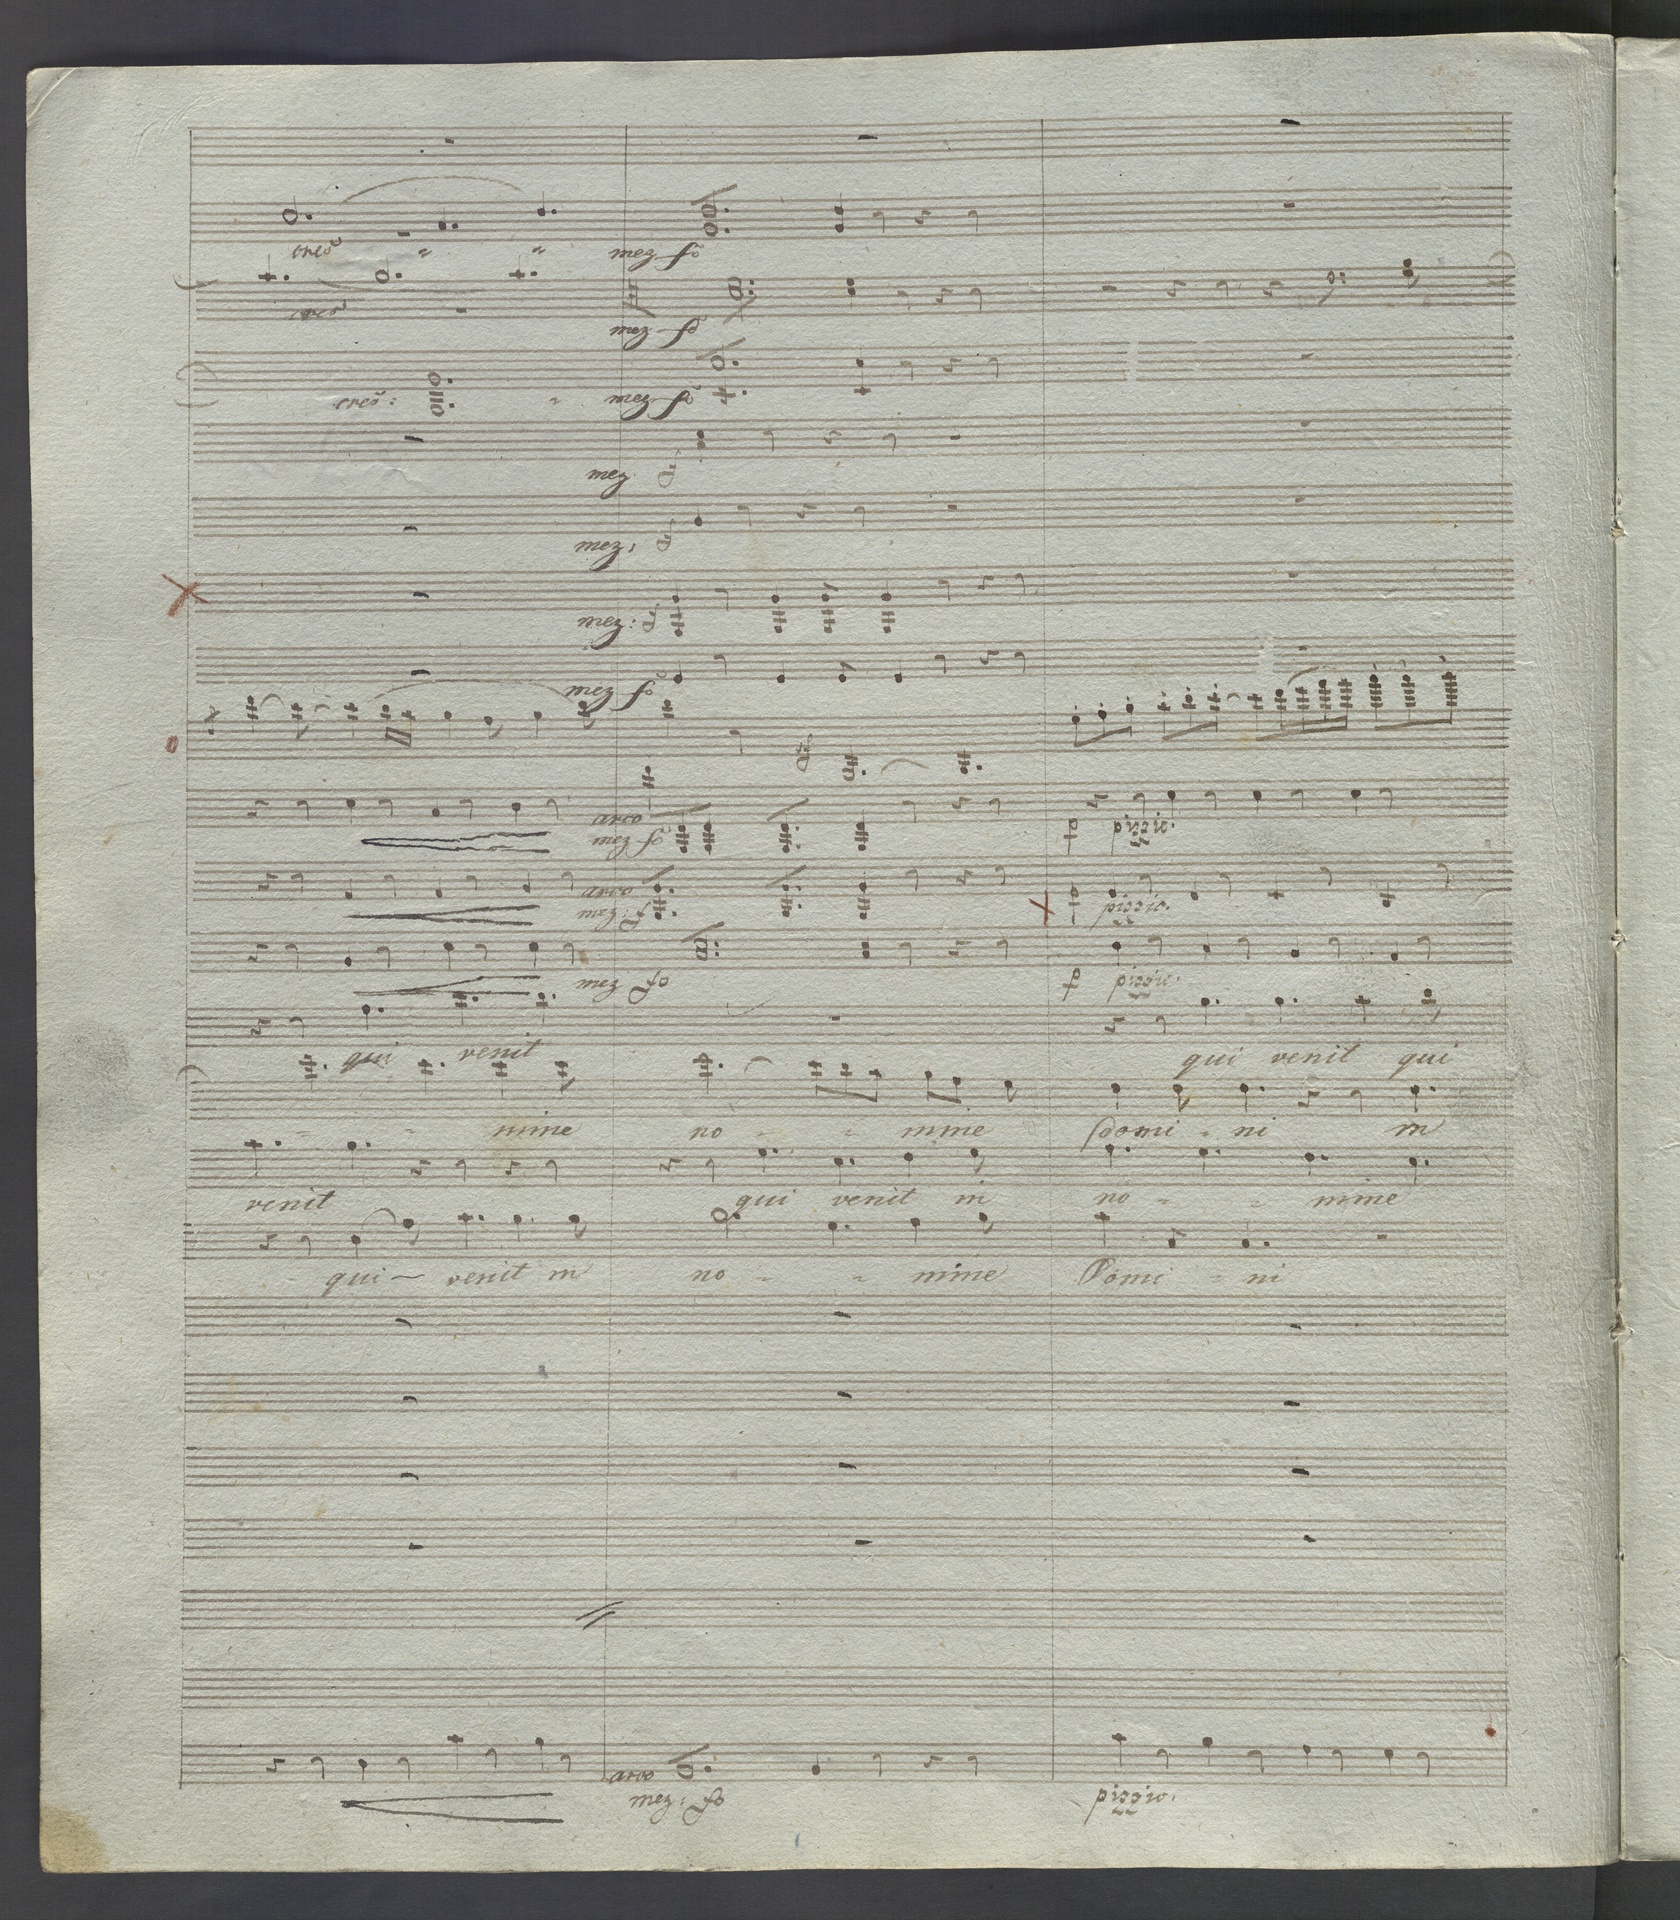 cresc " " mez fo
cresc mez fo
cresc: " mez fo
mez fo
mez: fo
mez: fo
mez fo
arco
mez fo p pizzic.
arco
mez: fo p pizzic.
mez fo p pizzic.
qui venit qui venit qui
- - mine no - - mine Domi - ni in
venit qui venit in no - - mine
qui - venit in no - - mine Domi - ni
arco
mez: fo pizzic.